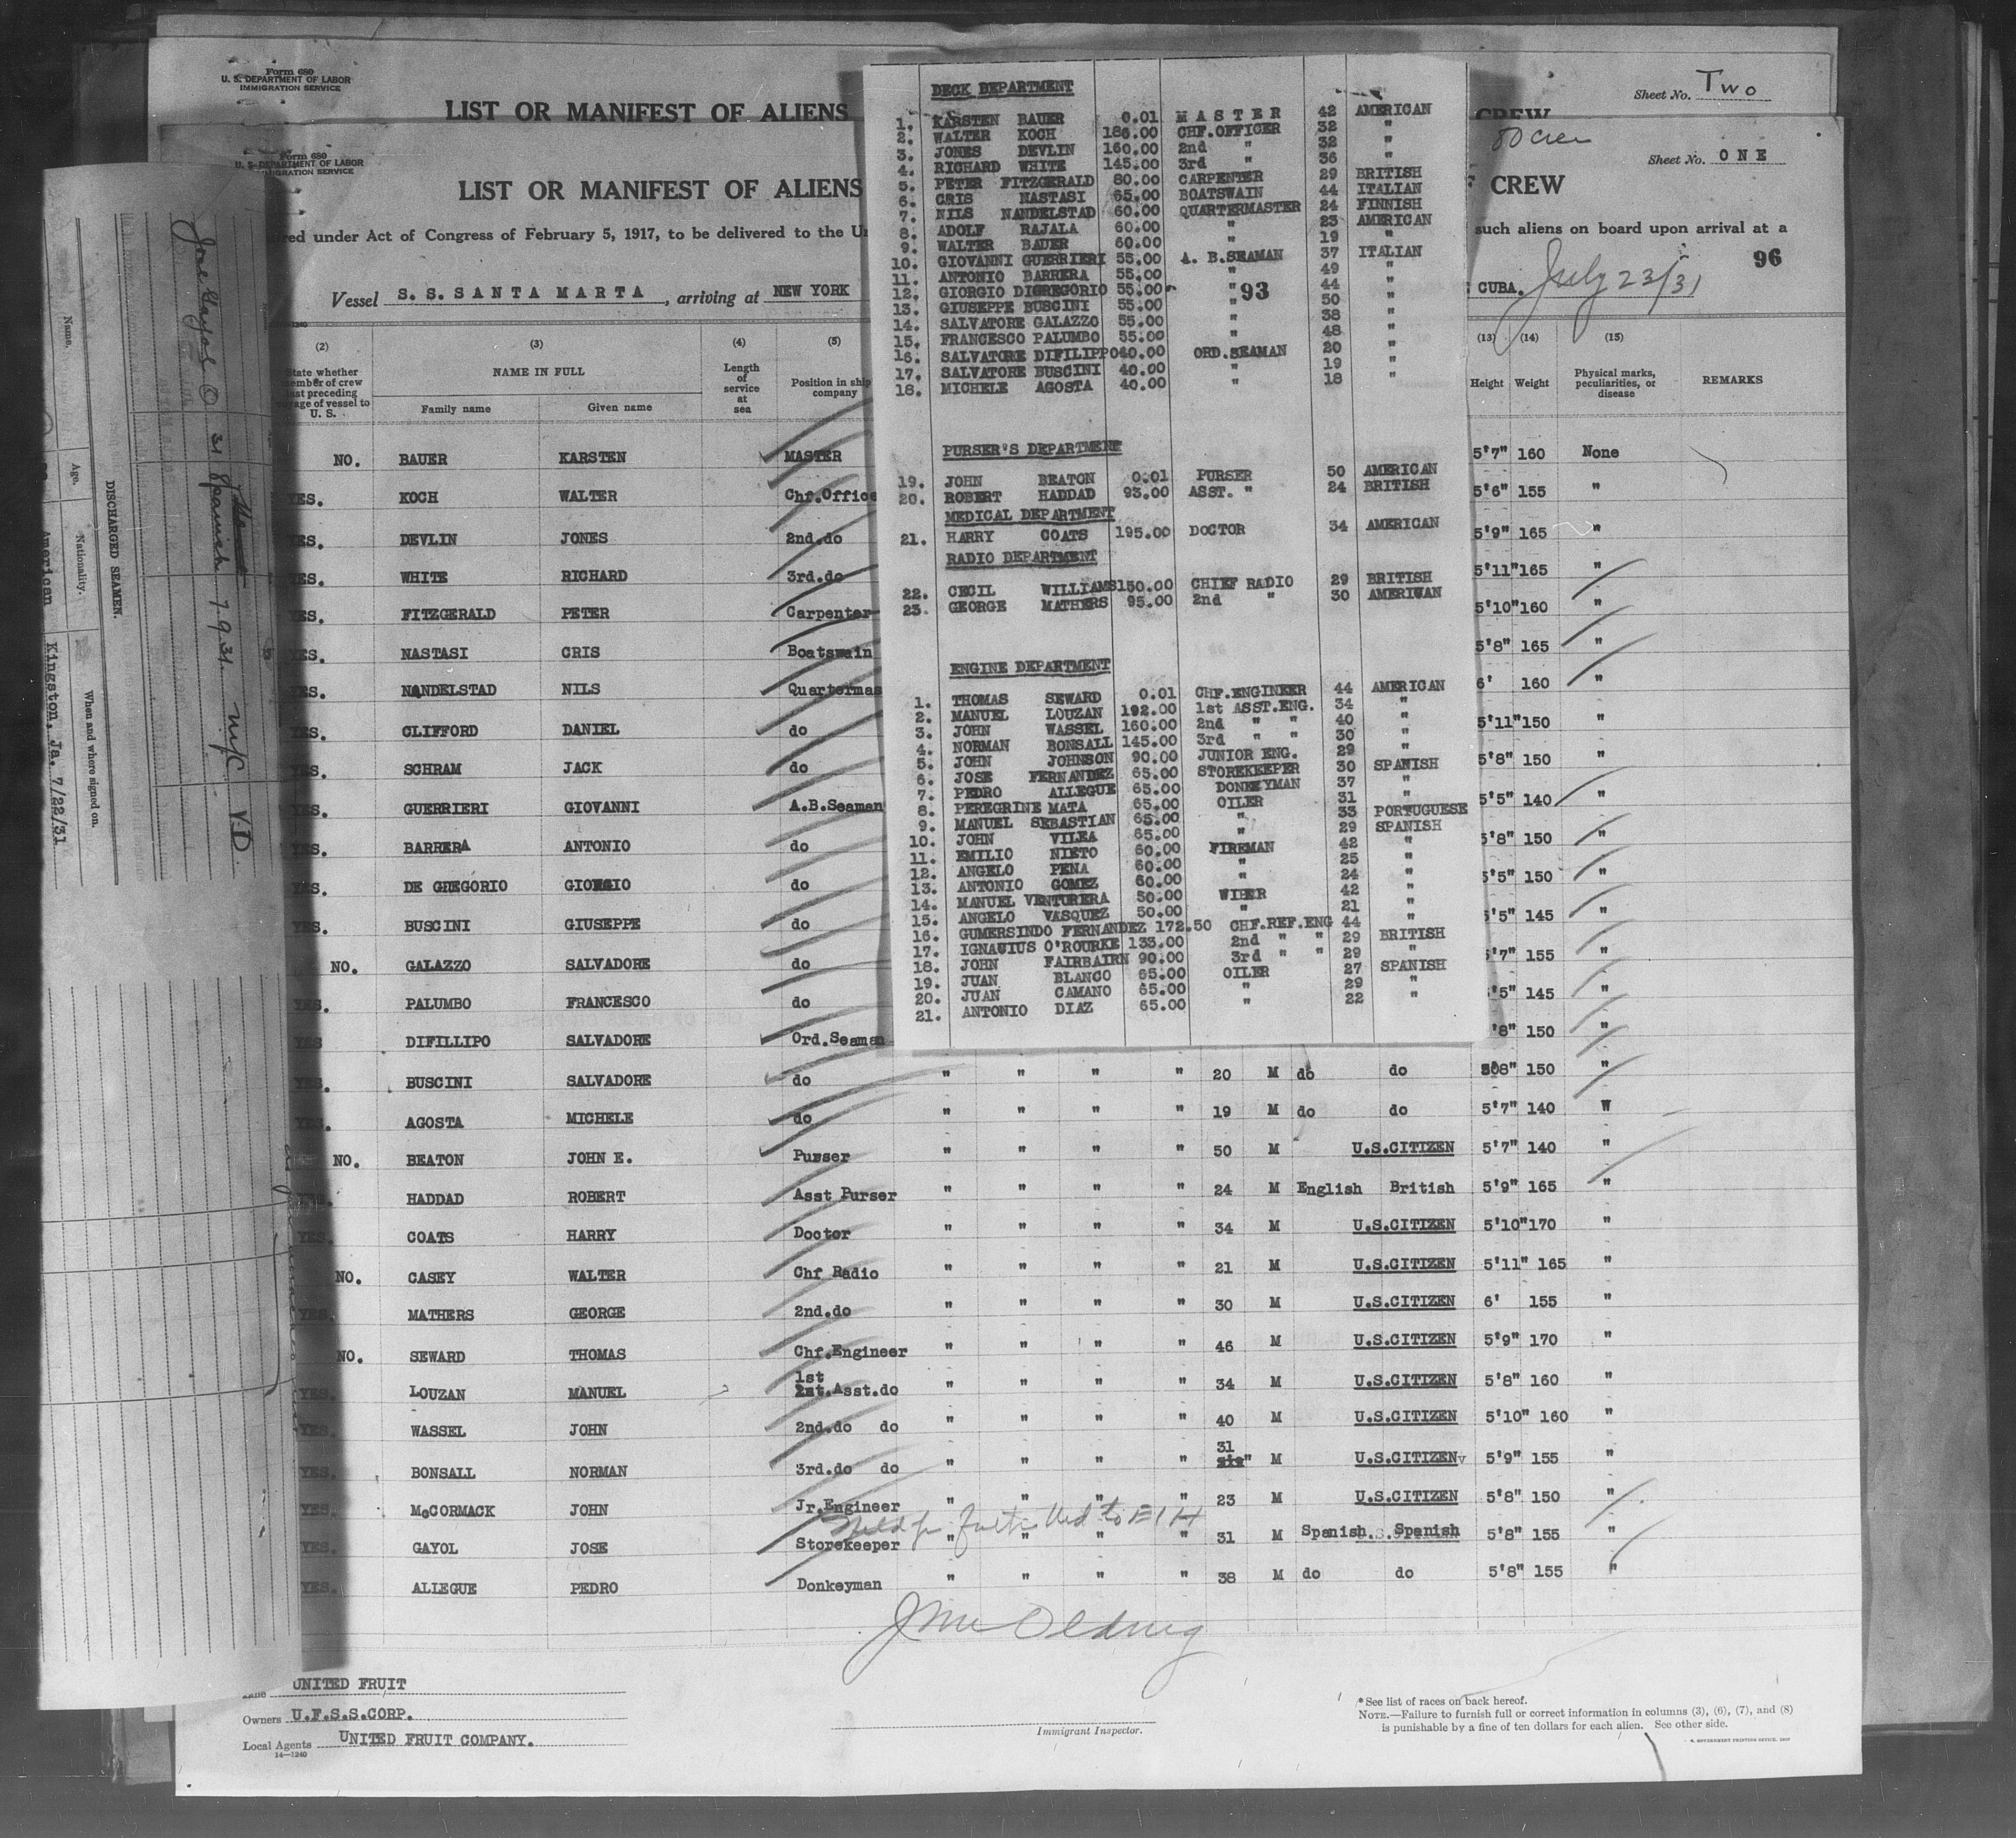 Form 680
U. S. DEPARTMENT OF LABOR
IMMIGRATION SERVICE
LIST OR MANIFEST OF ALIENS
CREW
Sheet No. Two
Form 680
U. S. DEPARTMENT OF LABOR
IMMIGRATION SERVICE
LIST OR MANIFEST OF ALIENS
CREW
Sheet No. ONE
under Act of Congress of February 5, 1917, to be delivered to the
such aliens on board upon arrival at a
96
Vessel S. S. SANTA MARTA, arriving at NEW YORK
CUBA. July 23/31
DECK DEPARTMENT
1. KARSTEN BAUER 0.01 MASTER 42 AMERICAN
2. WALTER KOCH 186.00 CHF.OFFICER 32 "
3. JONES DEVLIN 160.00 2nd " 32 "
4. RICHARD WHITE 145.00 3rd " 36 "
5. PETER FITZGERALD 80.00 CARPENTER 29 BRITISH
6. CRIS NASTASI 65.00 BOATSWAIN 44 ITALIAN
7. NILS NANDELSTAD 60.00 QUARTERMASTER 24 FINNISH
8. ADOLF RAJALA 60.00 " 23 AMERICAN
9. WALTER BAUER 60.00 " 19 "
10. GIOVANNI GUERRIERI 55.00 A. B.SEAMAN 37 ITALIAN
11. ANTONIO BARRERA 55.00 " 49 "
12. GIORGIO DIGREGORIO 55.00 " 44 "
93
13. GIUSEPPE BUSCINI 55.00 " 50 "
14. SALVATORE GALAZZO 55.00 " 38 "
15. FRANCESCO PALUMBO 55.00 " 48 "
16. SALVATORE DIFILIPPO 40.00 ORD.SEAMAN 20 "
17. SALVATORE BUSCINI 40.00 " 19 "
18. MICHELE AGOSTA 40.00 " 18 "
PURSER'S DEPARTMENT
19. JOHN BEATON 0.01 PURSER 50 AMERICAN
20. ROBERT HADDAD 93.00 ASST. " 24 BRITISH
MEDICAL DEPARTMENT
21. HARRY COATS 195.00 DOCTOR 34 AMERICAN
RADIO DEPARTMENT
22. CECIL WILLIAMS 150.00 CHIEF RADIO 29 BRITISH
23. GEORGE MATHERS 95.00 2nd " 30 AMERICAN
ENGINE DEPARTMENT
1. THOMAS SEWARD 0.01 CHF.ENGINEER 44 AMERICAN
2. MANUEL LOUZAN 192.00 1st ASST.ENG. 34 "
3. JOHN WASSEL 160.00 2nd " " 40 "
4. NORMAN BONSALL 145.00 3rd " " 30 "
5. JOHN JOHNSON 90.00 JUNIOR ENG. 29 "
6. JOSE FERNANDEZ 65.00 STOREKEEPER 30 SPANISH
7. PEDRO ALLEGUE 65.00 DONKEYMAN 37 "
8. PEREGRINE MATA 65.00 OILER 31 "
9. MANUEL SEBASTIAN 65.00 " 33 PORTUGUESE
10. JOHN VILEA 65.00 " 29 SPANISH
11. EMILIO NIETO 60.00 FIREMAN 42 "
12. ANGELO PENA 60.00 " 25 "
13. ANTONIO GOMEZ 60.00 " 24 "
14. MANUEL VENTURERA 50.00 WIPER 42 "
15. ANGELO VASQUEZ 50.00 " 21 "
16. GUMERSINDO FERNANDEZ 172.50 CHF.REF.ENG 44 "
17. IGNATIUS O'ROURKE 133.00 2nd " " 29 BRITISH
18. JOHN FAIRBAIRN 90.00 3rd " " 29 "
19. JUAN BLANCO 65.00 OILER 27 SPANISH
20. JUAN CAMANO 65.00 " 29 "
21. ANTONIO DIAZ 65.00 " 22 "
(2) (3) (4) (5) (13) (14) (15)
State whether member of crew last preceding voyage of vessel to U. S.
NAME IN FULL
Family name Given name
Length of service at sea
Position in ship company
Height Weight
Physical marks, peculiarities, or disease
REMARKS
NO. BAUER KARSTEN MASTER 5'7" 160 None
YES. KOCH WALTER Chf.Office 5'6" 155 "
YES. DEVLIN JONES 2nd.do 5'9" 165 "
YES. WHITE RICHARD 3rd.do 5'11" 165 "
YES. FITZGERALD PETER Carpenter 5'10" 160 "
YES. NASTASI CRIS Boatswain 5'8" 165 "
YES. NANDELSTAD NILS Quartermas 6' 160 "
YES. CLIFFORD DANIEL do 5'11" 150 "
YES. SCHRAM JACK do 5'8" 150 "
YES. GUERRIERI GIOVANNI A.B.Seaman 5'5" 140 "
YES. BARRERA ANTONIO do 5'8" 150 "
YES. DE GREGORIO GIORGIO do 5'5" 150 "
YES. BUSCINI GIUSEPPE do 5'5" 145 "
NO. GALAZZO SALVADORE do 5'7" 155 "
YES. PALUMBO FRANCESCO do '5" 145 "
YES DIFILLIPO SALVADORE Ord.Seaman '8" 150 "
YES. BUSCINI SALVADORE do " " " " 20 M do do 8" 150 "
YES. AGOSTA MICHELE do " " " " 19 M do do 5'7" 140 "
NO. BEATON JOHN E. Purser " " " " 50 M U.S.CITIZEN 5'7" 140 "
YES. HADDAD ROBERT Asst Purser " " " " 24 M English British 5'9" 165 "
YES. COATS HARRY Doctor " " " " 34 M U.S.CITIZEN 5'10" 170 "
NO. CASEY WALTER Chf Radio " " " " 21 M U.S.CITIZEN 5'11" 165 "
YES. MATHERS GEORGE 2nd.do " " " " 30 M U.S.CITIZEN 6' 155 "
NO. SEWARD THOMAS Chf.Engineer " " " " 46 M U.S.CITIZEN 5'9" 170 "
YES. LOUZAN MANUEL 1st Asst.do " " " " 34 M U.S.CITIZEN 5'8" 160 "
YES. WASSEL JOHN 2nd.do do " " " " 40 M U.S.CITIZEN 5'10" 160 "
YES. BONSALL NORMAN 3rd.do do " " " " 31 M U.S.CITIZEN 5'9" 155 "
YES. McCORMACK JOHN Jr.Engineer " " " " 23 M U.S.CITIZEN 5'8" 150 "
YES. GAYOL JOSE Storekeeper " " " " 31 M Spanish. Spanish 5'8" 155 "
YES. ALLEGUE PEDRO Donkeyman " " " " 38 M do do 5'8" 155 "
UNITED FRUIT
Owners U.F.S.S.CORP.
Local Agents UNITED FRUIT COMPANY.
14—1240
Immigrant Inspector.
* See list of races on back hereof.
NOTE.—Failure to furnish full or correct information in columns (3), (6), (7), and (8)
is punishable by a fine of ten dollars for each alien. See other side.
DISCHARGED SEAMEN.
Name. Age. Nationality. When and where signed on.
American Kingston, Ja. 7/22/31
31 Spanish 1931 NYC V.D.